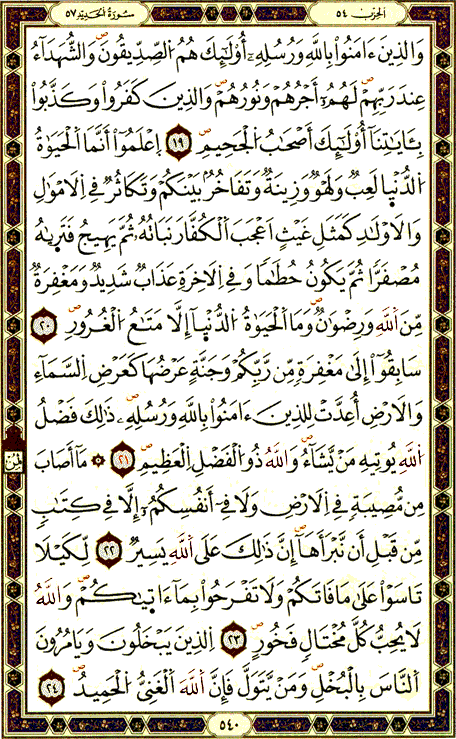 الحزب ٥٤
سورة الحديد ٥٧
وَالذِينَ ءَامَنُواْ بِاللَّهِ وَرُسُلِهِۦٓ أُوْلَٰٓئِكَ هُمُ الصِّدِّيقُونَۖ وَالشُّهَدَآءُ
عِندَ رَبِّهِمْ لَهُمُۥٓ أَجْرُهُمْ وَنُورُهُمْۖ وَالذِينَ كَفَرُواْ وَكَذَّبُواْ
بِـَٔايَٰتِنَآ أُوْلَٰٓئِكَ أَصْحَٰبُ الْجَحِيمِۖ ١٩ اِعْلَمُوٓاْ أَنَّمَا الْحَيَوٰةُ
الدُّنْيا لَعِبٌ وَلَهْوٌ وَزِينَةٌ وَتَفَاخُرُۢ بَيْنَكُمْ وَتَكَاثُرٌ فِے اِلَامْوَٰلِ
وَالَاوْلَٰدِ كَمَثَلِ غَيْثٍ اَعْجَبَ اَلْكُفَّارَ نَبَاتُهُۥ ثُمَّ يَهِيجُ فَتَر۪ىٰهُ
مُصْفَرّاٗ ثُمَّ يَكُونُ حُطَٰماٗ وَفِے اِلَاخِرَةِ عَذَابٌ شَدِيدٌ وَمَغْفِرَةٌ
مِّنَ اَللَّهِ وَرِضْوَٰنٌۖ وَمَا الْحَيَوٰةُ الدُّنْيآ إِلَّا مَتَٰعُ الْغُرُورِۖ ٢٠
سَابِقُوٓاْ إِلَىٰ مَغْفِرَةٍ مِّن رَّبِّكُمْ وَجَنَّةٍ عَرْضُهَا كَعَرْضِ اِلسَّمَآءِ
وَالَارْضِ أُعِدَّتْ لِلذِينَ ءَامَنُواْ بِاللَّهِ وَرُسُلِهِۦۖ ذَٰلِكَ فَضْلُ
اُللَّهِ يُوتِيهِ مَنْ يَّشَآءُۖ وَاللَّهُ ذُو الْفَضْلِ الْعَظِيمِۖ ٢١ ۞ مَآ أَصَابَ
مِن مُّصِيبَةٍ فِے اِلَارْضِ وَلَا فِےٓ أَنفُسِكُمُۥٓ إِلَّا فِے كِتَٰبٍ
مِّن قَبْلِ أَن نَّبْرَأَهَآۖ إِنَّ ذَٰلِكَ عَلَى اَللَّهِ يَسِيرٌۖ ٢٢ لِّكَيْلَا
تَاسَوْاْ عَلَىٰ مَا فَاتَكُمْ وَلَا تَفْرَحُواْ بِمَآ ءَات۪يٰكُمْۖ وَاللَّهُ
لَا يُحِبُّ كُلَّ مُخْتَالٍ فَخُورٍۖ ٢٣ اِلذِينَ يَبْخَلُونَ وَيَامُرُونَ
اَلنَّاسَ بِالْبُخْلِۖ وَمَنْ يَّتَوَلَّ فَإِنَّ اَللَّهَ الْغَنِيُّ الْحَمِيدُۖ ٢٤
ثمن
٥٤٠